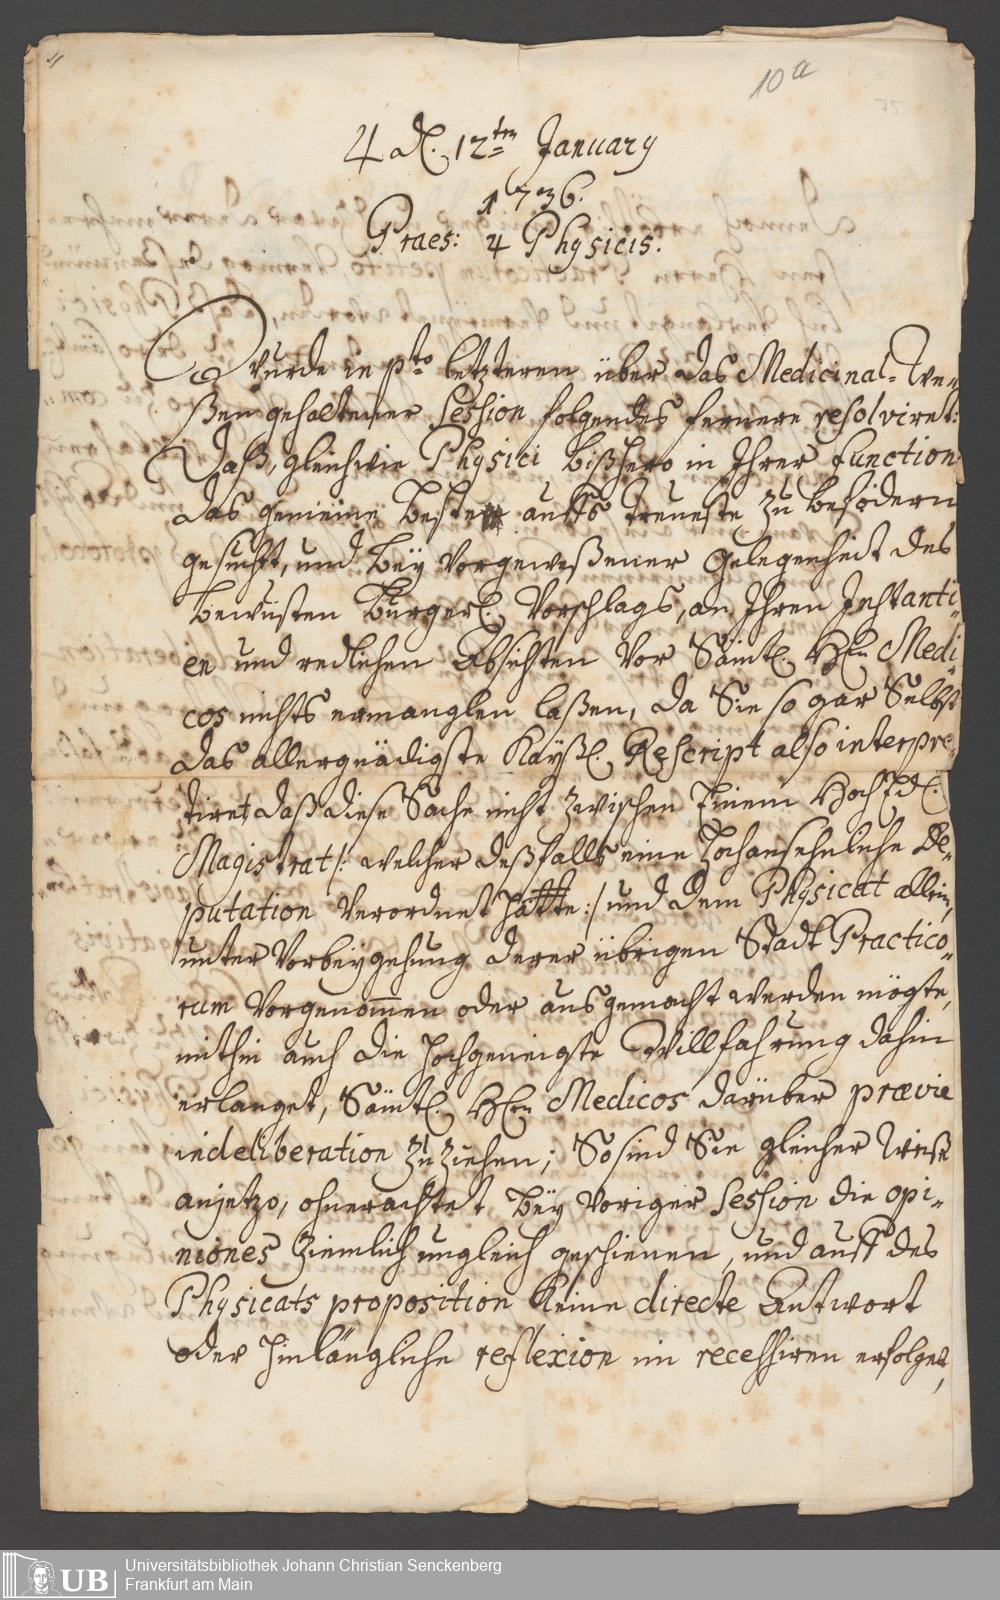 10a
75
♃ d. 12ten January
1736.
Praes: 4 Physicis.
Wurde in pto letzteren über das Medicinal-We-
ßen gehaltener Session folgendes fernere resolviret:
Daß, gleichwie Physici bißhero in Ihrer Function
das gemeine Beste auffs treueste zu befördern
gesucht, und bey vorgeweßener Gelegenheit des
bewusten Burgerl. Vorschlags, an Ihren Instanti-
en und redlichen Absichten vor Sämtl. HEn Medi-
cos nichts ermanglen laßen, da Sie so gar Selbst
das allergnädigste Kayßl. Rescript also interpre-
tiret, daß diese Sache nicht zwischen Einem HochEdl.
Magistrat /: welcher deßfalls eine Hochansehnliche De-
putation verordnet hätte :/ und dem Physicat allein,
unter Vorbeygehung derer übrigen Stadt Practico-
rum vorgenom̄en oder ausgemacht werden mögte,
mithin auch die hochgeneigte Willfahrung dahin
erlanget, Sämtl. HEn Medicos darüber prævie
in deliberation zu ziehen; So sind Sie gleicher Weiße
anjetzo, ohnerachtet bey voriger Session die opi-
niones ziemlich ungleich geschienen, und auff des
Physicats proposition keine directe Antwort
oder hinlängliche reflexion im recessiren erfolget,
UB
Universitätsbibliothek Johann Christian Senckenberg
Frankfurt am Main